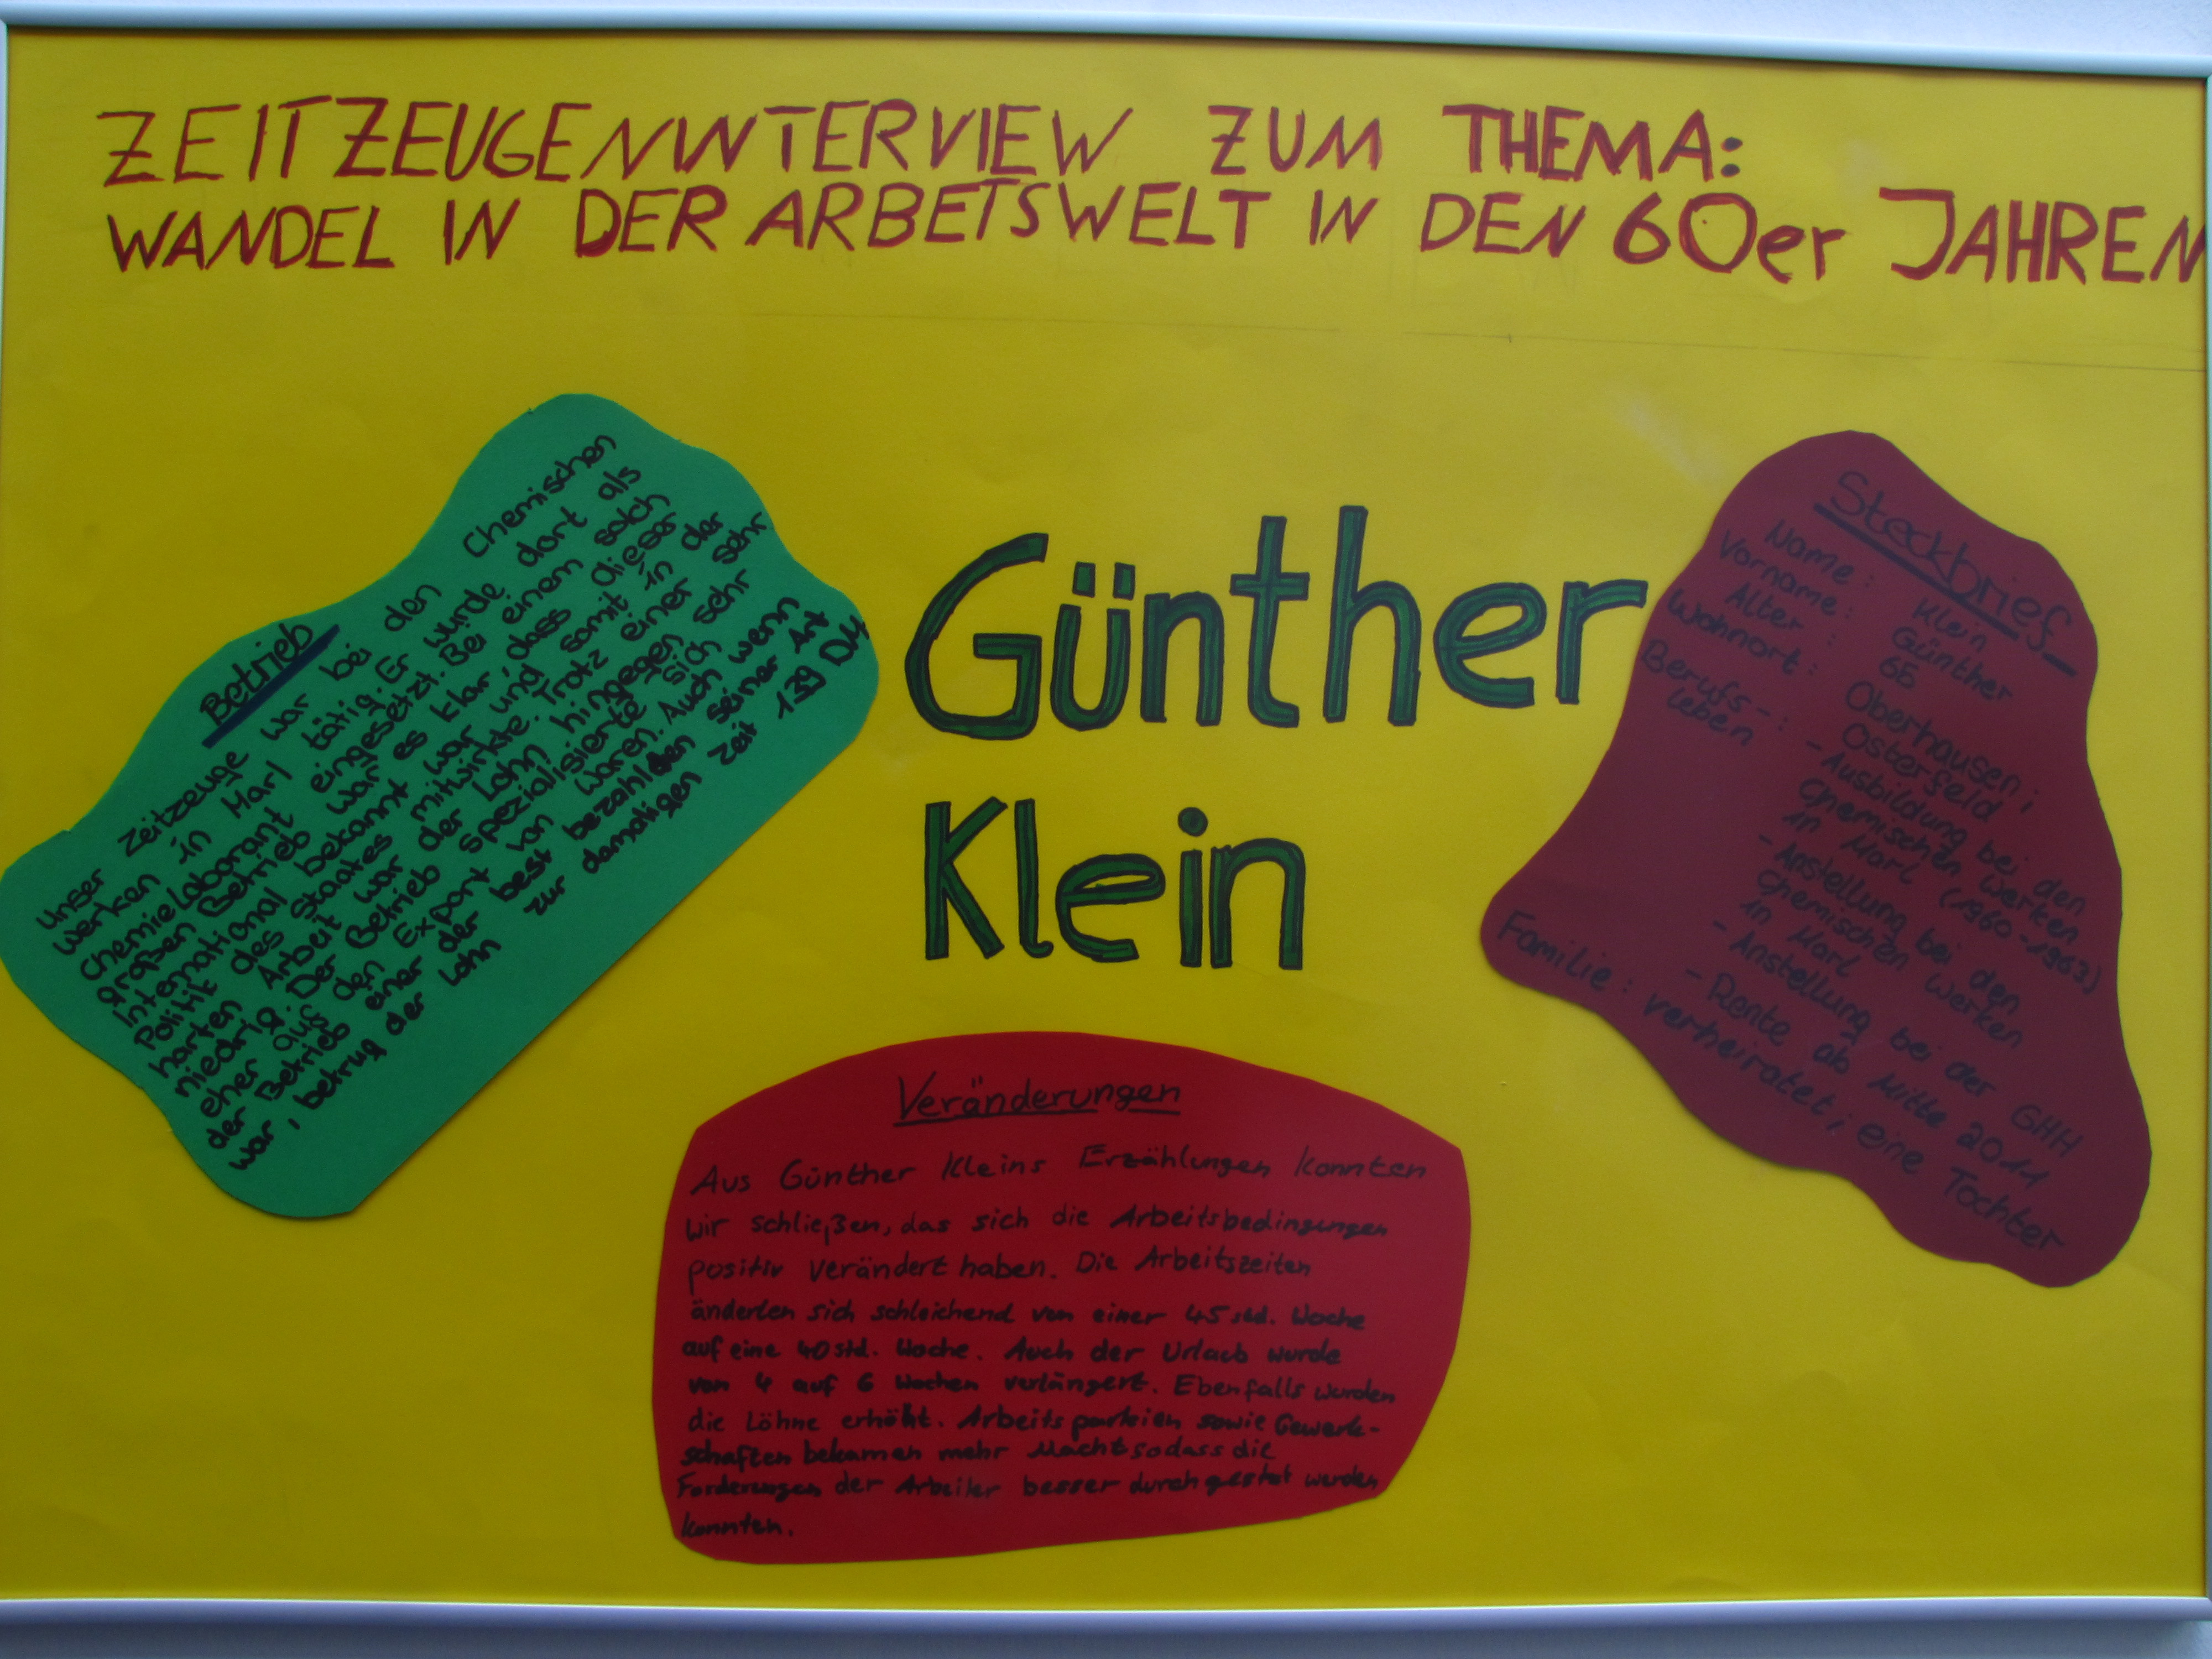 ZEITZEUGENINTERVIEW ZUM THEMA:
WANDEL IN DER ARBEITSWELT IN DEN 60er JAHREN
Betrieb
Unser Zeitzeuge war bei den Chemischen
Werken in Marl tätig. Er wurde dort als
Chemielaborant eingesetzt. Bei einem solch
großen Betrieb war es klar, dass dieser
International bekannt war und somit in der
Politik des Staates mitwirkte. Trotz einer sehr
harten Arbeit war der Lohn hingegen sehr
niedrig. Der Betrieb spezialisierte sich
eher auf den Export von Waren. Auch wenn
der Betrieb einer der best bezahlten seiner Art
war, betrug der Lohn zur damaligen Zeit 139 DM
Günther
Klein
Steckbrief
Name: Klein
Vorname: Günther
Alter: 66
Wohnort: Oberhausen;
Osterfeld
Berufs-: - Ausbildung bei den
leben Chemischen Werken
in Marl (1960-1963)
- Anstellung bei den
Chemischen Werken
in Marl
- Anstellung bei der GHH
- Rente ab Mitte 2011
Familie: verheiratet; eine Tochter
Veränderungen
Aus Günther Kleins Erzählungen konnten
wir schließen, das sich die Arbeitsbedingungen
positiv verändert haben. Die Arbeitszeiten
änderten sich schleichend von einer 45 std. Woche
auf eine 40 std. Woche. Auch der Urlaub wurde
von 4 auf 6 Wochen verlängert. Ebenfalls wurden
die Löhne erhöht. Arbeitsparteien sowie Gewerk-
schaften bekamen mehr Macht sodass die
Forderungen der Arbeiter besser durch werden
konnten.